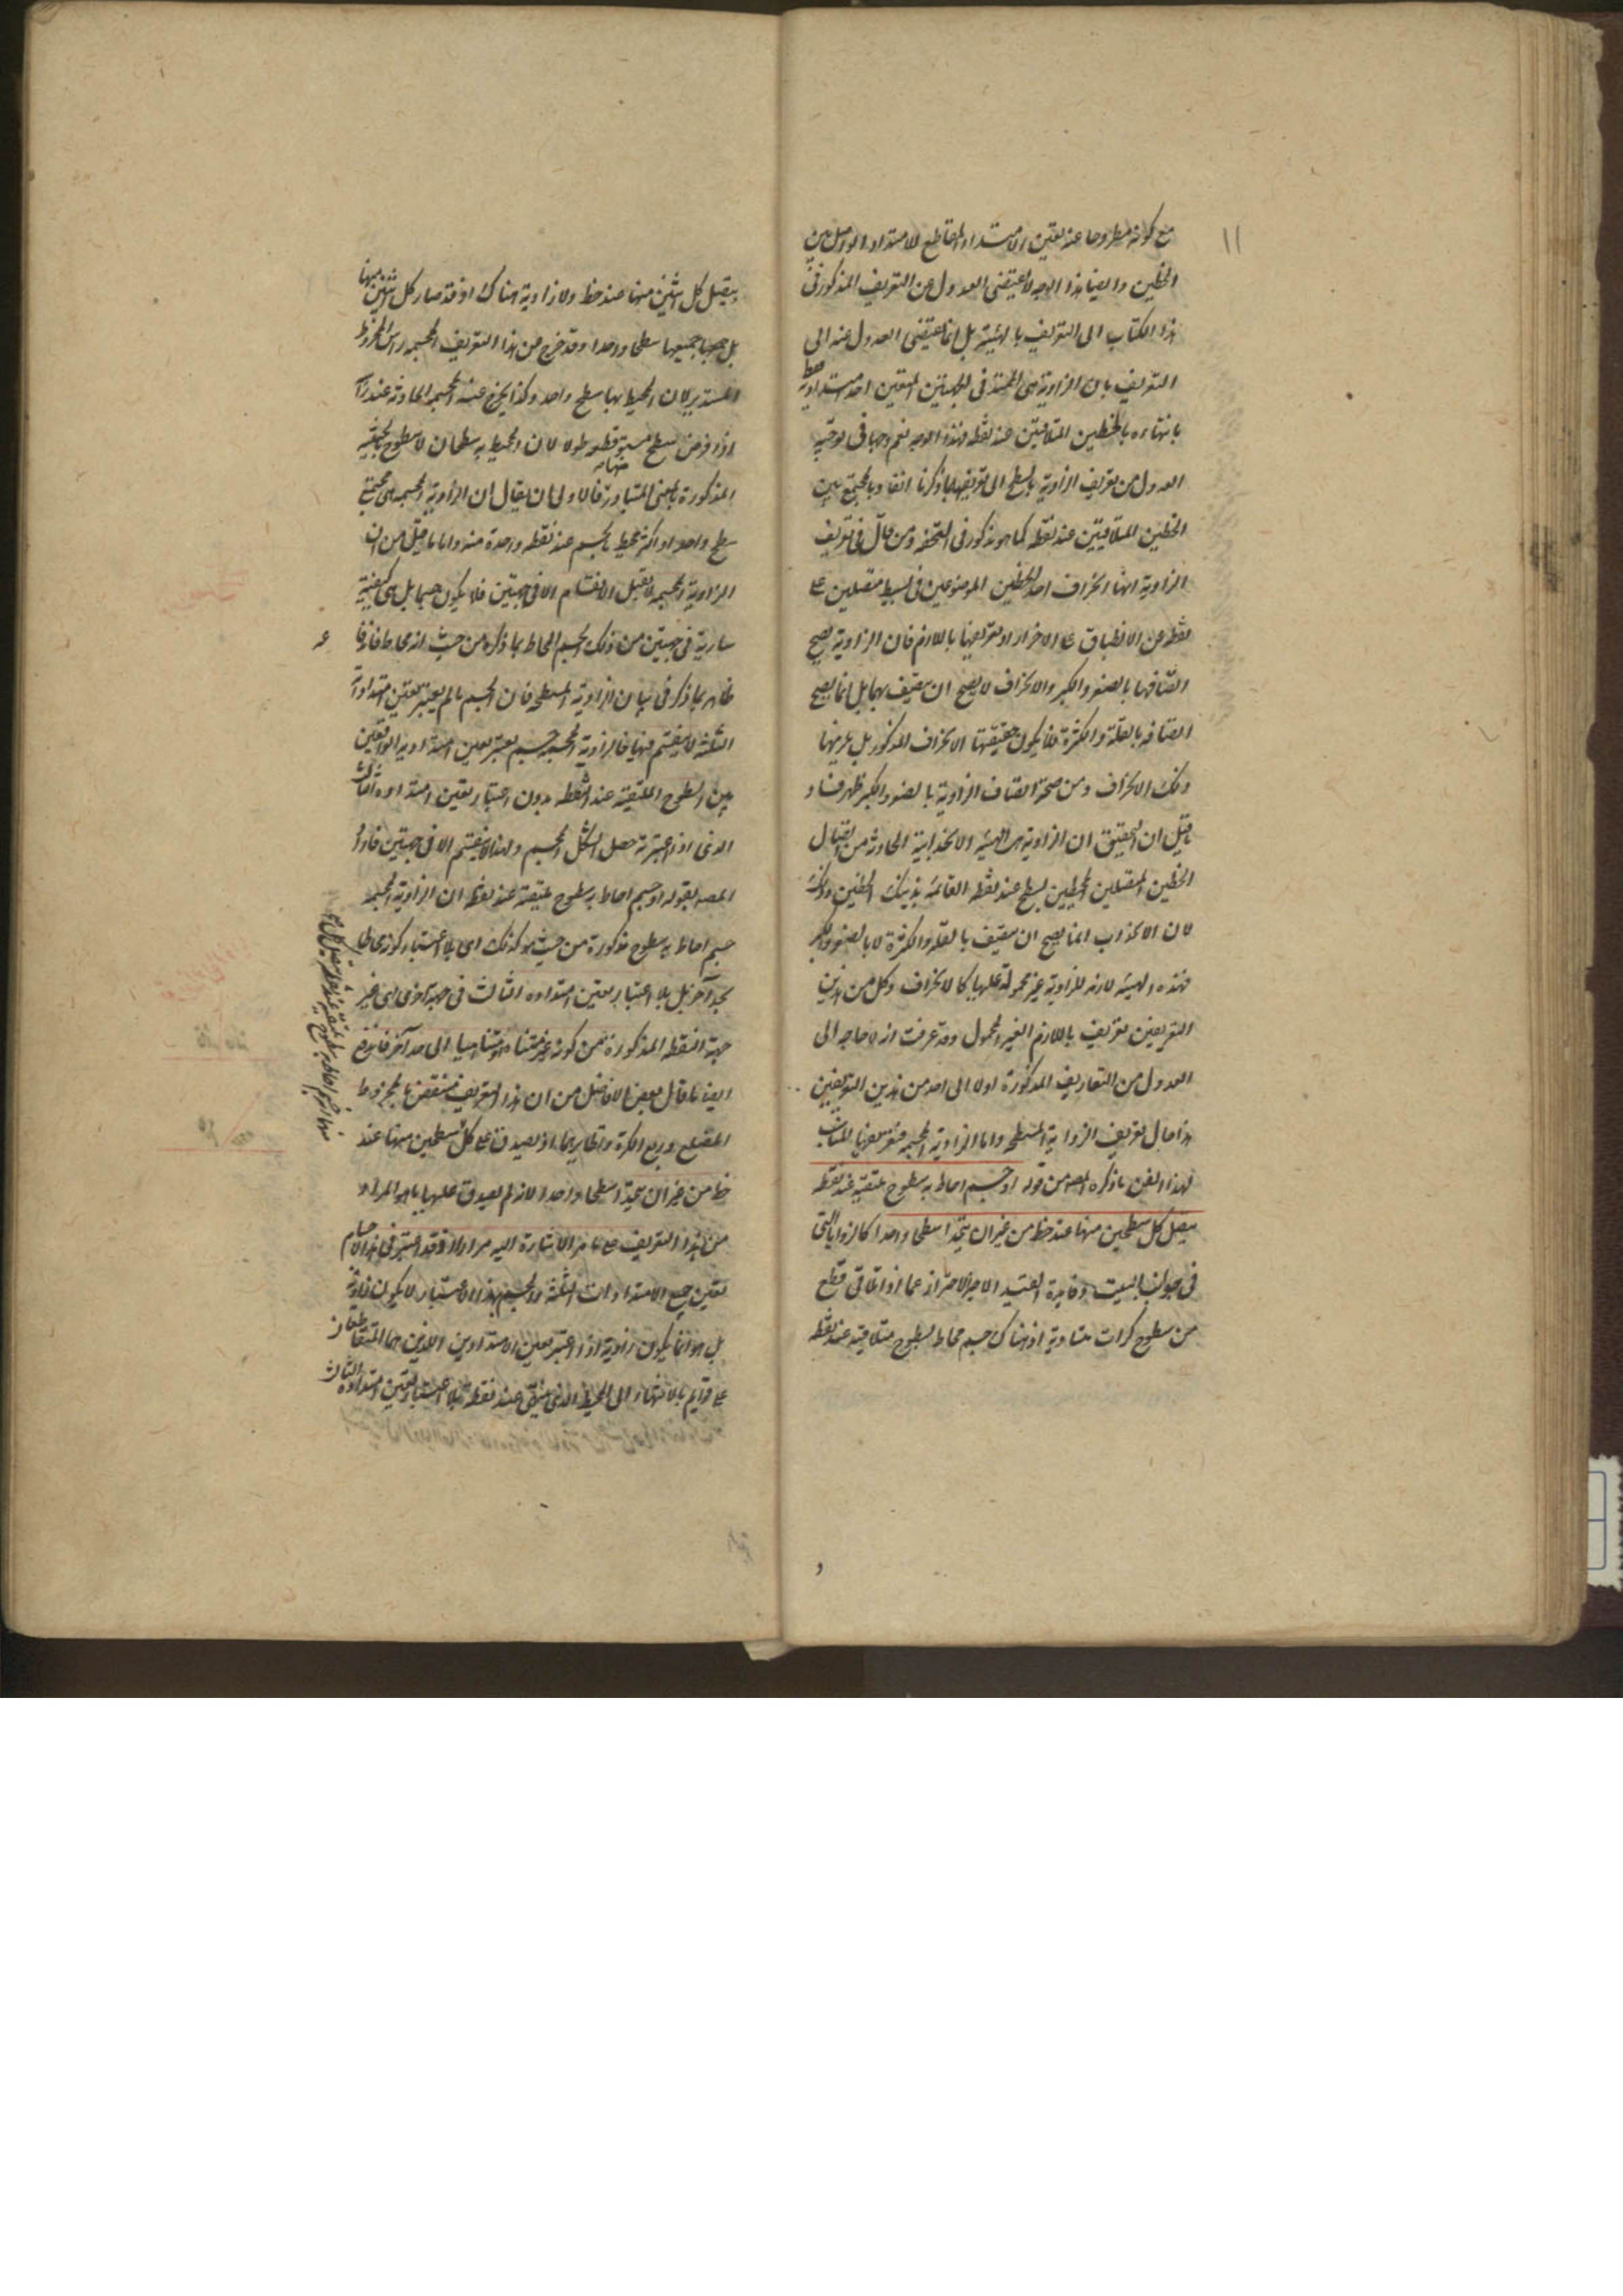 ١١
مع كونه مطروحا عند تعين الامتداد المقاطع للامتداد الواصل بين
الخطين وايضا هذا الوجه لا يقتضى العدول عن التعريف المذكور فى
هذا الكتاب الى التعريف بالهيئة بل انما يقتضى العدول عنه الى
التعريف بان الزاوية هى الممتد فى الجهتين المتعين احد امتداديه فقط
بانتهاءه بالخطين المتلاقيين عند نقطه فهذا الوجه نعم وجها فى توجيه
العدول من تعريف الزاوية بالسطح الى تعريفها بما ذكرنا انفا وبالمجتمع بين
الخطين المتلاقيين عند نقطه كما هو مذكور فى التحفه ومن قال فى تعريف
الزاوية انها انحراف احد الخطين الموضوعين فى بسيط متصلين على
نقطه عن الانطباق على الاخر اراد تعريفها باللازم فان الزاوية يصح
اتصافها بالصغر والكبر والانحراف لا يصح ان يتصف بهما بل انما يصح
اتصافه بالقلة والكثرة فلا يكون حقيقتها الانحراف المذكور بل يلزمها
ذلك الانحراف ومن صحة اتصاف الزاوية بالصغر والكبر ظهر فساد
ما قيل ان التحقيق ان الزاوية هى الهيئه الانحدابية الحادثه من اتصال
الخطين المتصلين المحيطين بسطح عند نقطه القائمة بذينك الخطين وذلك
لان الانحداب انما يصح ان يتصف بالقله والكثرة لا بالصغر والكبر
فهذه الهيئه لازمه للزاوية غير محمولة عليها كالانحراف وكل من هذين
التعريفين تعريف باللازم الغير المحمول وقد عرفت انه لا حاجه الى
العدول من التعاريف المذكورة اولا الى احد من هذين التعريفين
هذا حال تعريف الزواية المسطحه واما الزاوية المجسمه فتعريفها المناسب
لهذا الفن ما ذكره المصه من قوله او جسم احاط به سطوح ملتقيه عند نقطه
يتصل كل سطحين منها عند خط من غير ان يتحدا سطحا واحدا كالزوايا التى
فى جوانب البيت وفايدة القيد الاخير الاحتراز عما اذا تلاقى قطع
من سطوح كرات متساوية اذ هناك جسم محاط بسطوح متلاقيه عند نقطه
و
ويتصل كل اثنين منها عند خط ولا زاوية هناك اذ قد صار كل اثنين منها
بل جميعها سطحا واحدا وقد خرج من هذا التعريف المجسمه راس المخروط
المستدير لان المحيط بها سطح واحد وكذا يخرج عنه المجسمه الحادثه عند
اذا فرض سطح مستو قطعه طولا لان المحيط به سطحان لا سطوح مجتمعة
المذكورة بالمعنى المتبادر منها فالاولى ان يقال ان الزاوية المجسمه هى مجتمع
سطح واحد او اكثر محيط بالجسم عند نقطه واحدة منه واما ما قيل من ان
الزاوية المجسمه لا تقبل الانقسام الا فى جهتين فلا يكون جسما بل هى كيفية
سارية فى جهتين من ذلك الجسم المحاط بما ذكره من حيث انه محاط
ظاهر بما ذكر فى بيان الزاوية المسطحه فان الجسم ما لم يعتبر تعين امتداداته
الثلثة لا ينقسم فيها فالزاوية المجسمه جسم يعتبر تعين امتداديه الواقعين
بين السطوح الملتقية عند النقطه بدون اعتبار تعين امتداده الثالث
الذى اذا اعتبر ته حصل الشكل المجسم ولهذا لا ينقسم الا فى جهتين فاراد
المصه بقوله او جسم احاط به سطوح ملتقية عند نقطه ان الزاوية المجسمه
جسم احاط به سطوح مذكورة من حيث هو كذلك اى بلا اعتبار كونه محاطا
بحد آخر بل بلا اعتبار تعين امتداده الثالث فى جهة اخرى اى غير
جهة النقطه المذكورة من كونه غير متناه او متناهيا الى حد آخر فاندفع
ايضا ما قال بعض الافاضل من ان هذا التعريف منتقض بالمخروط
المضلع وربع الكرة ونظايرهما اذ يصدق على كل سطحين منها عند
خط من غير ان يتحدا سطحا واحدا لانه لم يصدق عليها ما هو المراد
من هذا التعريف على ما مر الاشارة اليه مرارا اذ قد اعتبر فى هذه الاجسام
تعين جميع الامتدادات الثلثة والجسم بهذا الاعتبار لا يكون زاوية
بل هو انما يكون زاوية اذا اعتبر تعين الامتدادين اللذين هما المتقاطعان
على قوايم بالانتهاء الى المحيط الذى يلتقى عند نقطة بلا اعتبار تعين امتداده الثالث